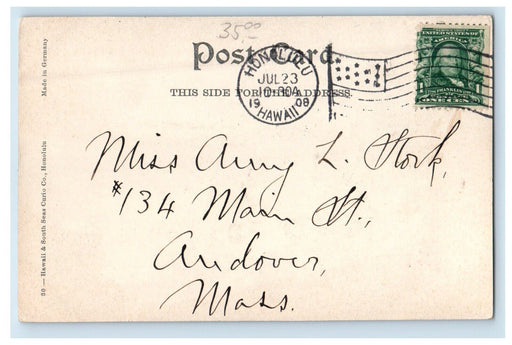 35.00
Post Card.
THIS SIDE FOR THE ADDRESS.
HONOLULU
JUL 23
10-30A
1908
HAWAII
UNITED STATES OF AMERICA
ONE CENT
Miss Amy L. Stork,
#134 Main St.,
Andover,
Mass.
Made in Germany
50 — Hawaii & South Seas Curio Co., Honolulu